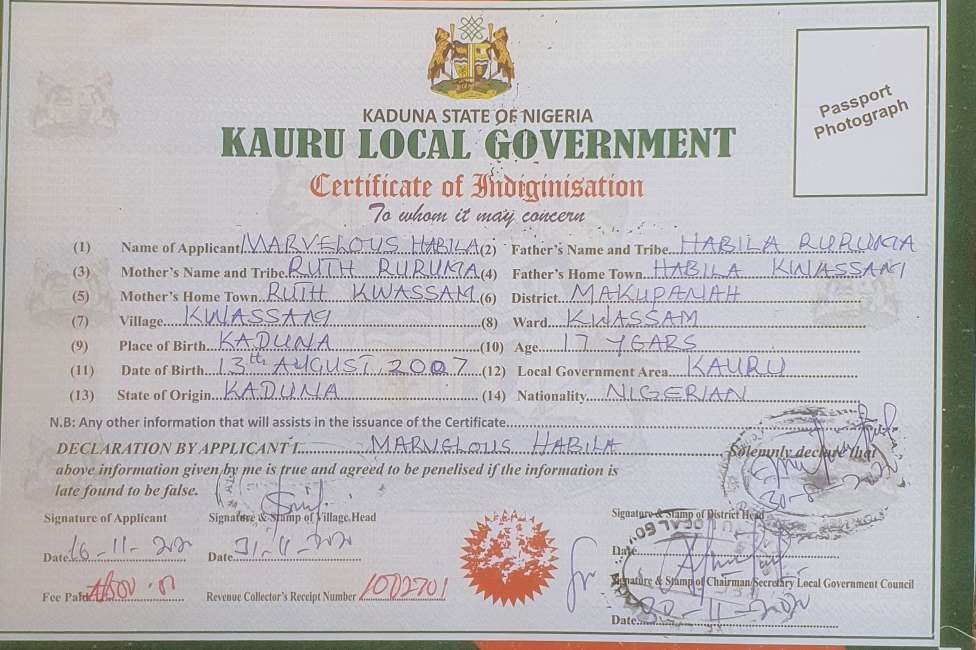 KADUNA STATE OF NIGERIA
KAURU LOCAL GOVERNMENT
Certificate of Indiginisation
To whom it may concern
Passport
Photograph
(1) Name of Applicant MARVELOUS HABILA (2) Father's Name and Tribe HABILA RURUMA
(3) Mother's Name and Tribe RUTH RURUMA (4) Father's Home Town HABILA KWASSAM
(5) Mother's Home Town RUTH KWASSAM (6) District MAKUPANAH
(7) Village KWASSAM (8) Ward KWASSAM
(9) Place of Birth KADUNA (10) Age 17 YEARS
(11) Date of Birth 13th AUGUST 2007 (12) Local Government Area KAURU
(13) State of Origin KADUNA (14) Nationality NIGERIAN
N.B: Any other information that will assists in the issuance of the Certificate
DECLARATION BY APPLICANT I MARVELOUS HABILA Solemnly declare that
above information given by me is true and agreed to be penelised if the information is
late found to be false.
Signature of Applicant Signature & Stamp of Village Head Signature & Stamp of District Head
Date 16-11- Date 31- Date
Signature & Stamp of Chairman/Secretary Local Government Council
Fee Paid Revenue Collector's Receipt Number 1002701
Date